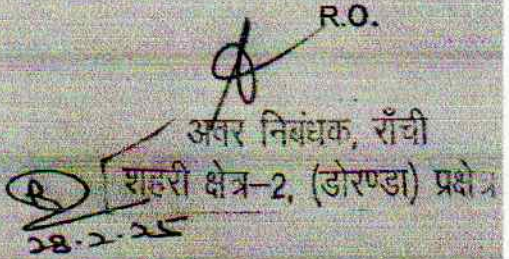 R.O.
अवर निबंधक, राँची
शहरी क्षेत्र-2, (डोरण्डा) प्रक्षेत्र
28.2.25